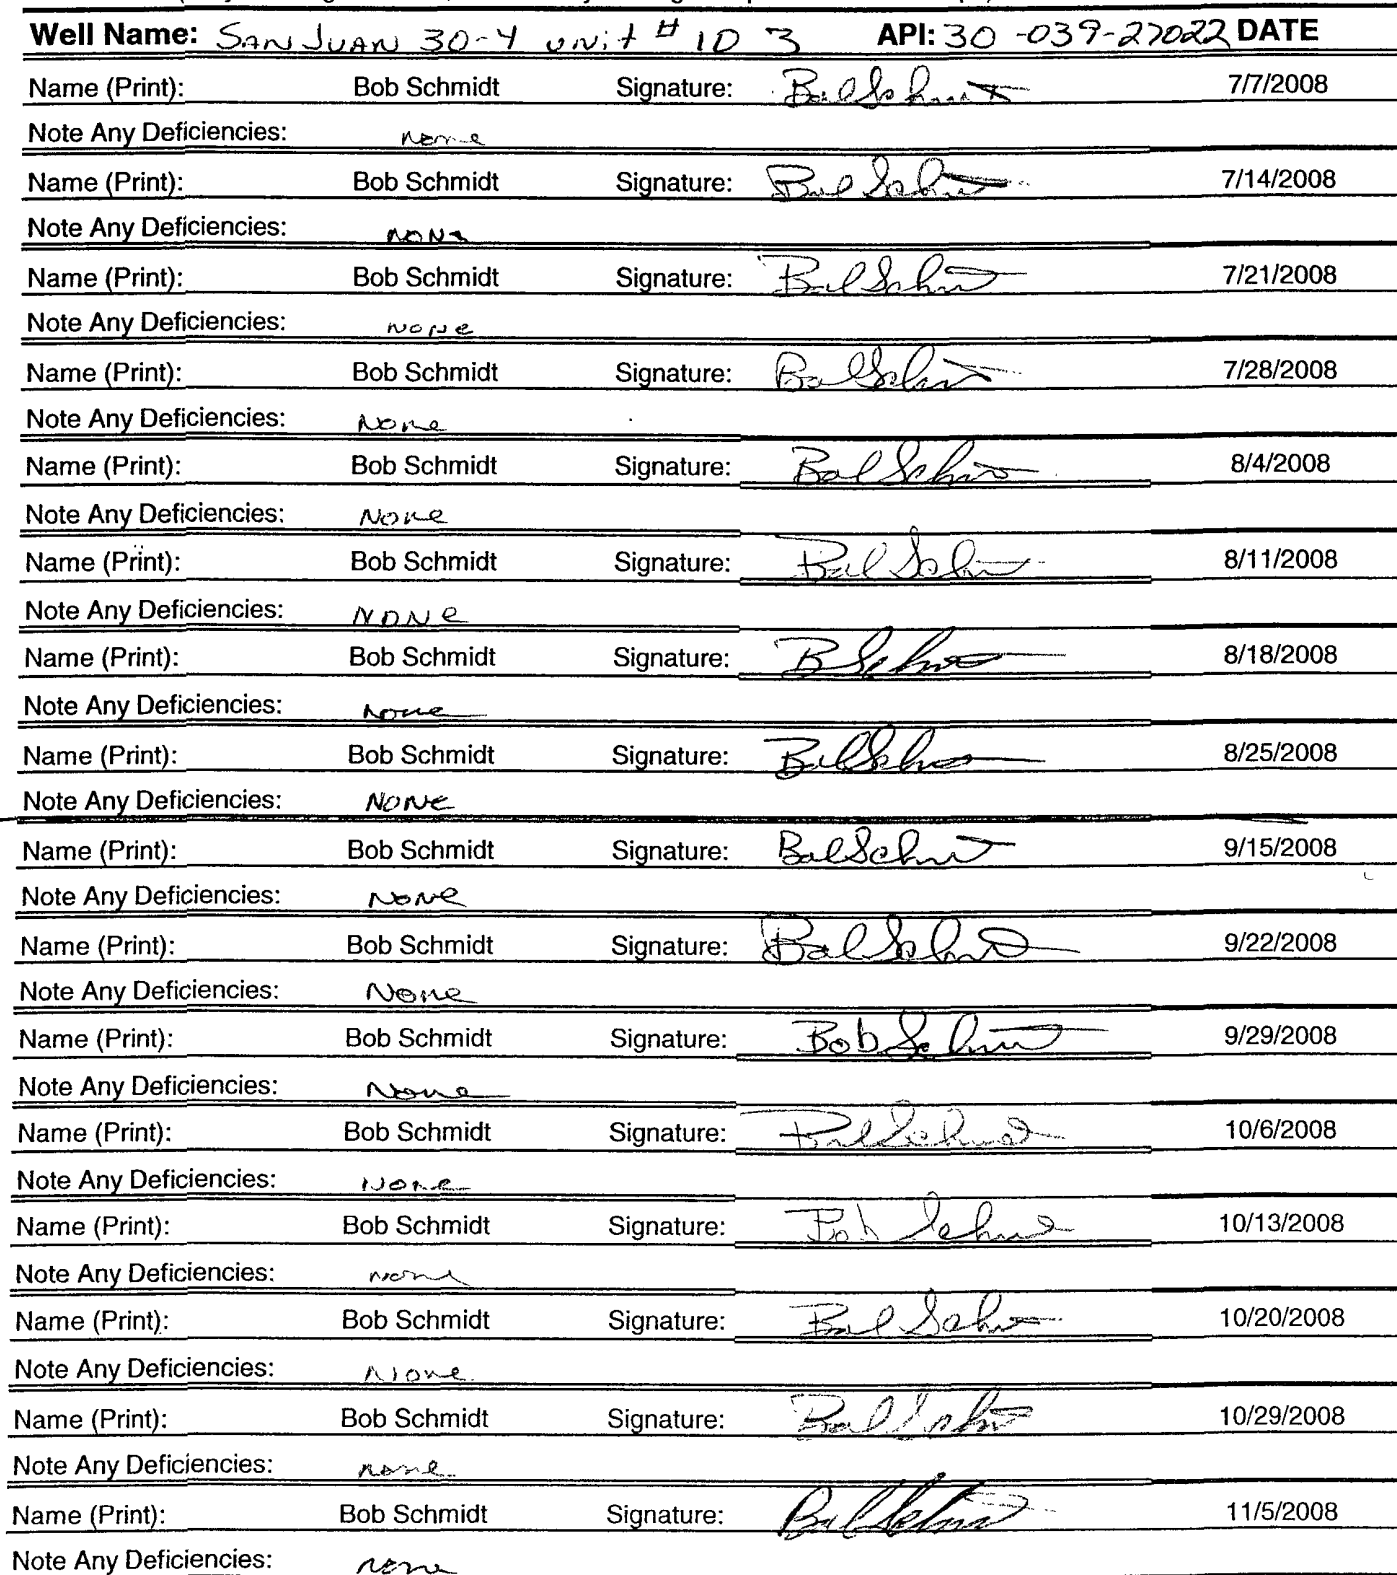 Well Name: SAN JUAN 30-4 unit # 10 3 API: 30-039-27022 DATE
Name (Print): Bob Schmidt Signature: Bob Schmidt 7/7/2008
Note Any Deficiencies: none
Name (Print): Bob Schmidt Signature: Bob Schmidt 7/14/2008
Note Any Deficiencies: NONe
Name (Print): Bob Schmidt Signature: Bob Schmidt 7/21/2008
Note Any Deficiencies: None
Name (Print): Bob Schmidt Signature: Bob Schmidt 7/28/2008
Note Any Deficiencies: None
Name (Print): Bob Schmidt Signature: Bob Schmidt 8/4/2008
Note Any Deficiencies: None
Name (Print): Bob Schmidt Signature: Bob Schmidt 8/11/2008
Note Any Deficiencies: NONe
Name (Print): Bob Schmidt Signature: B Schmidt 8/18/2008
Note Any Deficiencies: None
Name (Print): Bob Schmidt Signature: Bob Schmidt 8/25/2008
Note Any Deficiencies: NONe
Name (Print): Bob Schmidt Signature: Bob Schmidt 9/15/2008
Note Any Deficiencies: NoNe
Name (Print): Bob Schmidt Signature: Bob Schmidt 9/22/2008
Note Any Deficiencies: None
Name (Print): Bob Schmidt Signature: Bob Schmidt 9/29/2008
Note Any Deficiencies: None
Name (Print): Bob Schmidt Signature: Bob Schmidt 10/6/2008
Note Any Deficiencies: None
Name (Print): Bob Schmidt Signature: Bob Schmidt 10/13/2008
Note Any Deficiencies: none
Name (Print): Bob Schmidt Signature: Bob Schmidt 10/20/2008
Note Any Deficiencies: None
Name (Print): Bob Schmidt Signature: Bob Schmidt 10/29/2008
Note Any Deficiencies: none
Name (Print): Bob Schmidt Signature: Bob Schmidt 11/5/2008
Note Any Deficiencies: none